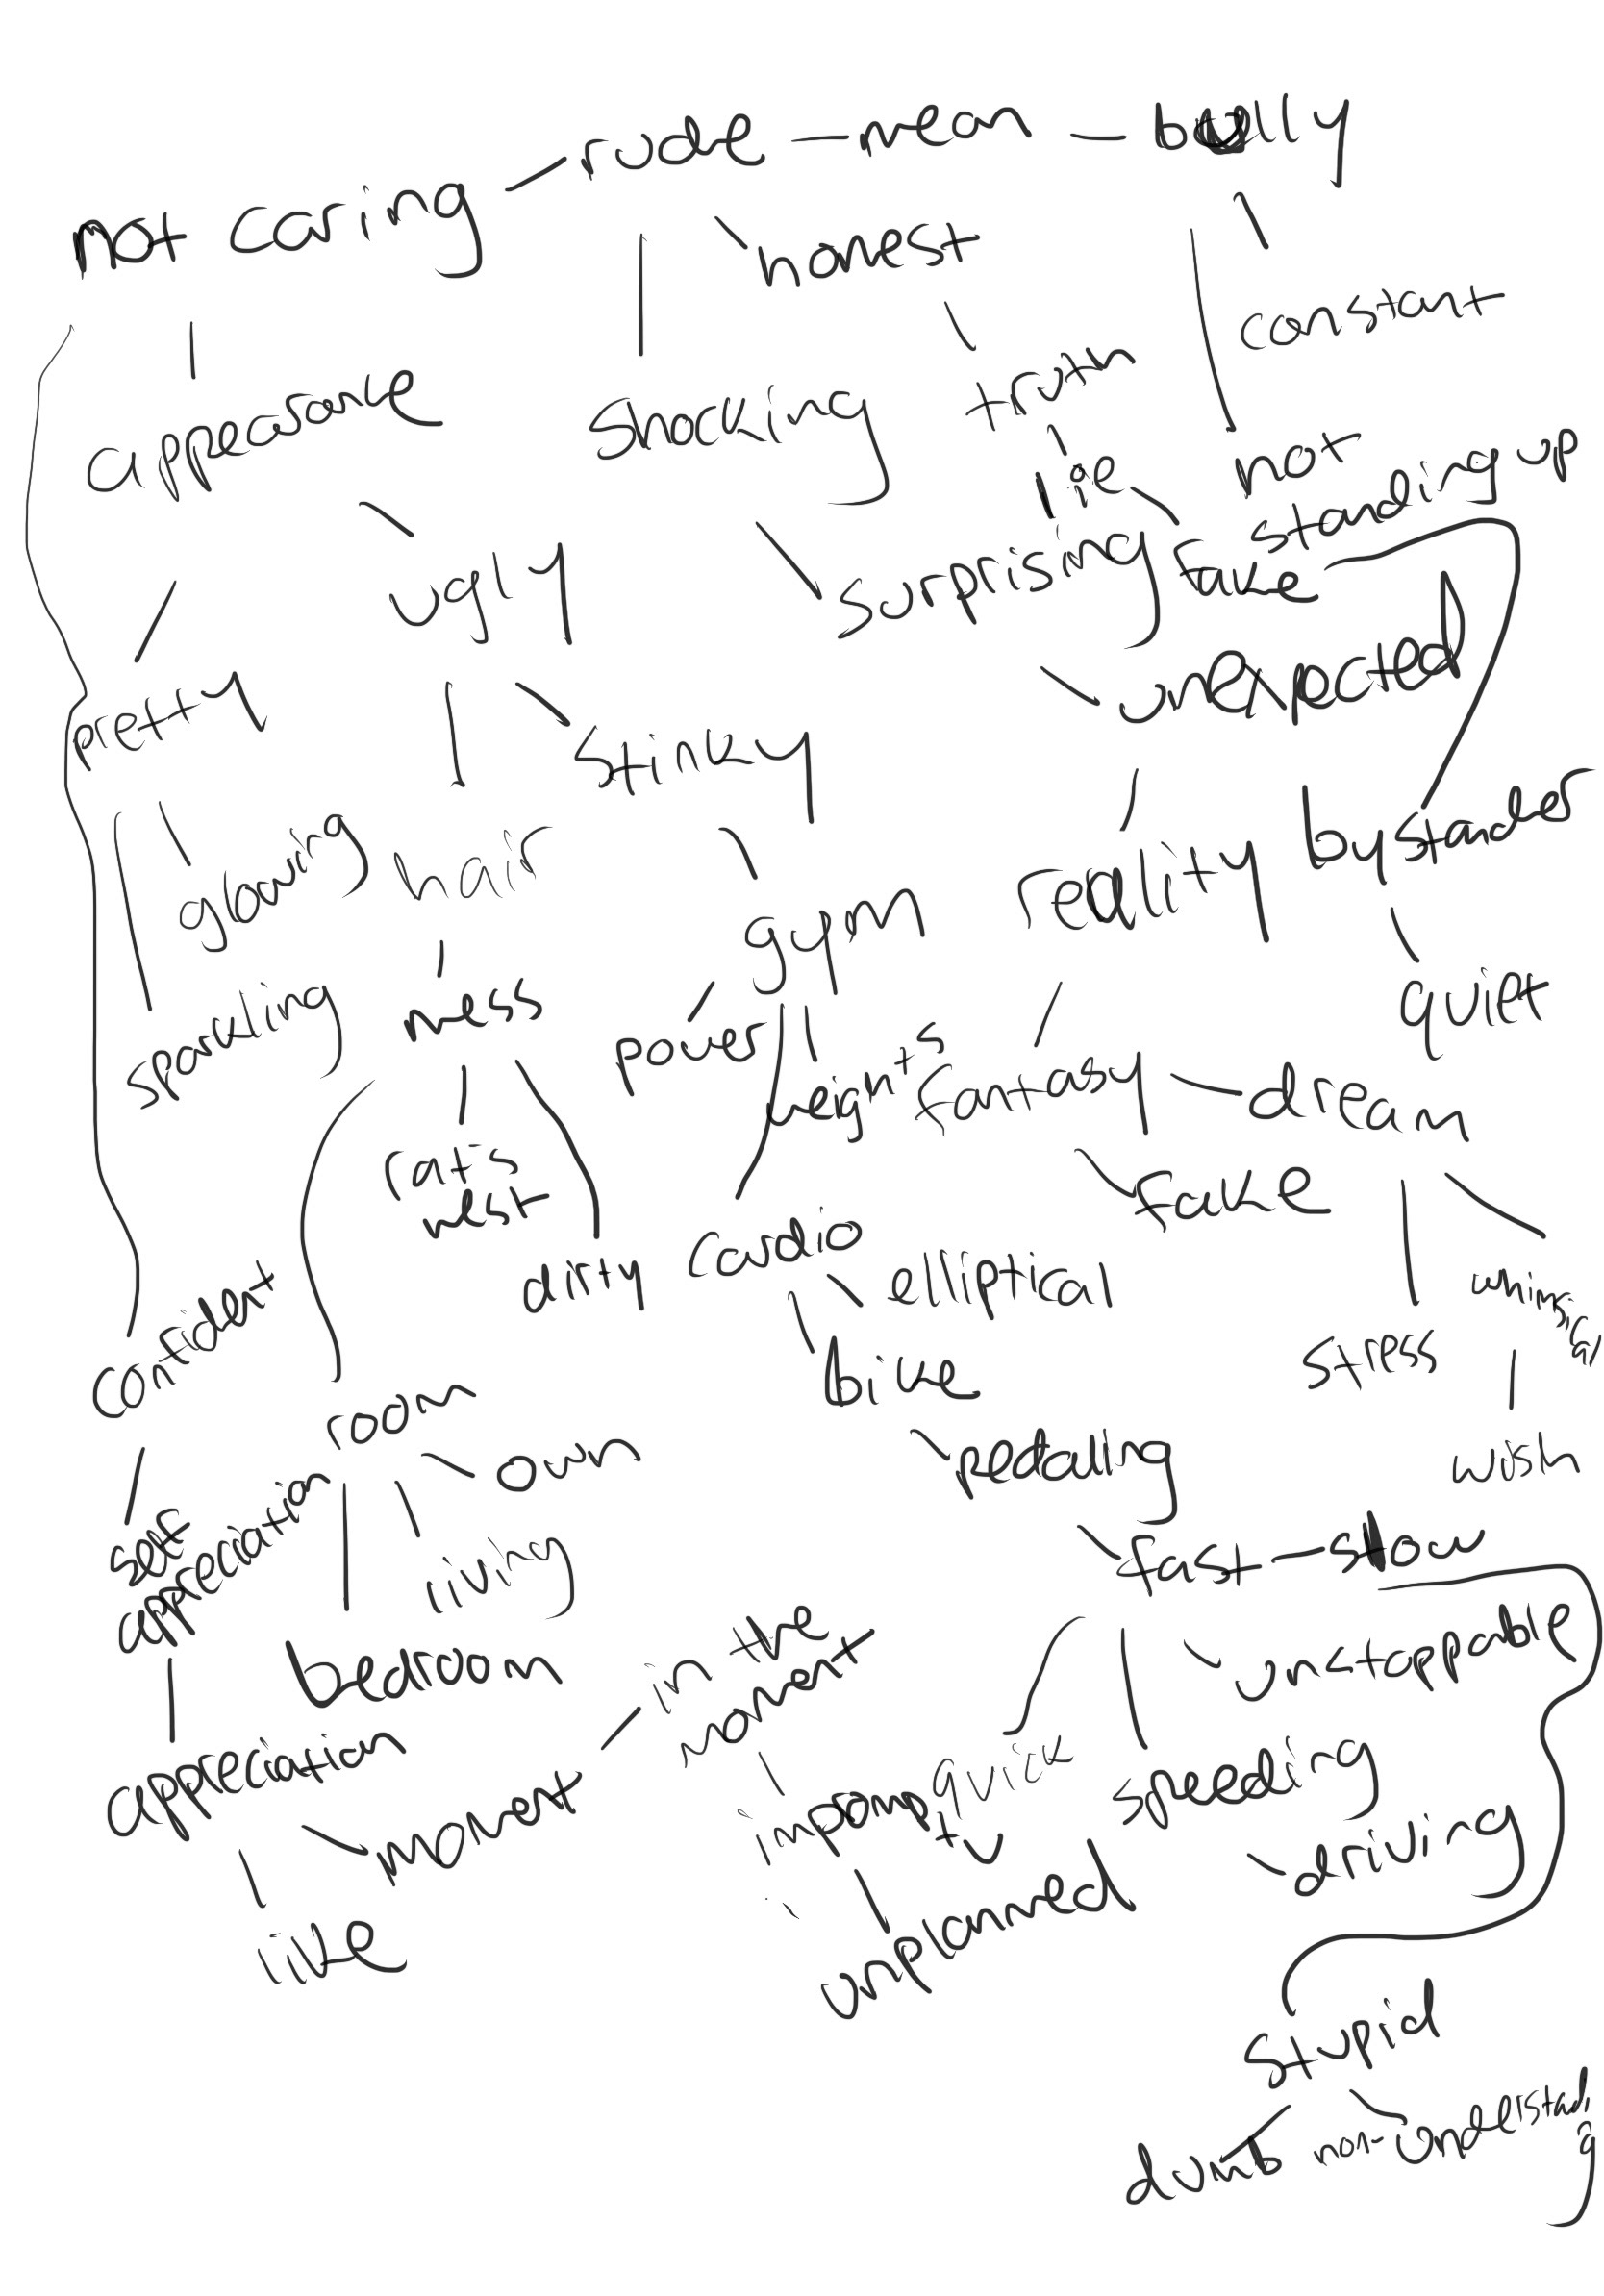 not caring
rude
mean
bully
honest
constant
appearance
shocking
truth
lie
not
standing up
ugly
surprising
fake
unexpected
pretty
stinky
glowing
hair
gym
reality
bystander
sparkling
mess
power
weights
fantasy
dream
quiet
rat's
nest
fake
dirty
cardio
elliptical
whimsical
confident
bike
stress
room
own
pedaling
wish
self
appreciation
living
fast
slow
bedroom
in the
moment
unstoppable
appreciation
moment
quick
speeding
driving
like
unplanned
stupid
dumb
non-understading